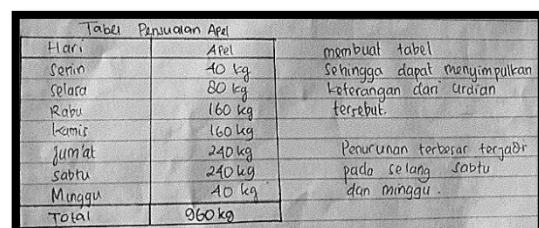 Tabel Penjualan Apel
Hari Apel
Senin 40 kg
Selasa 80 kg
Rabu 160 kg
kamis 160 kg
Jum'at 240 kg
Sabtu 240 kg
Minggu 40 kg
Total 960 kg
membuat tabel
Sehingga dapat menyimpulkan
keterangan dari urdian
tersebut.
Penurunan terbesar terjadi
pada selang sabtu
dan minggu.